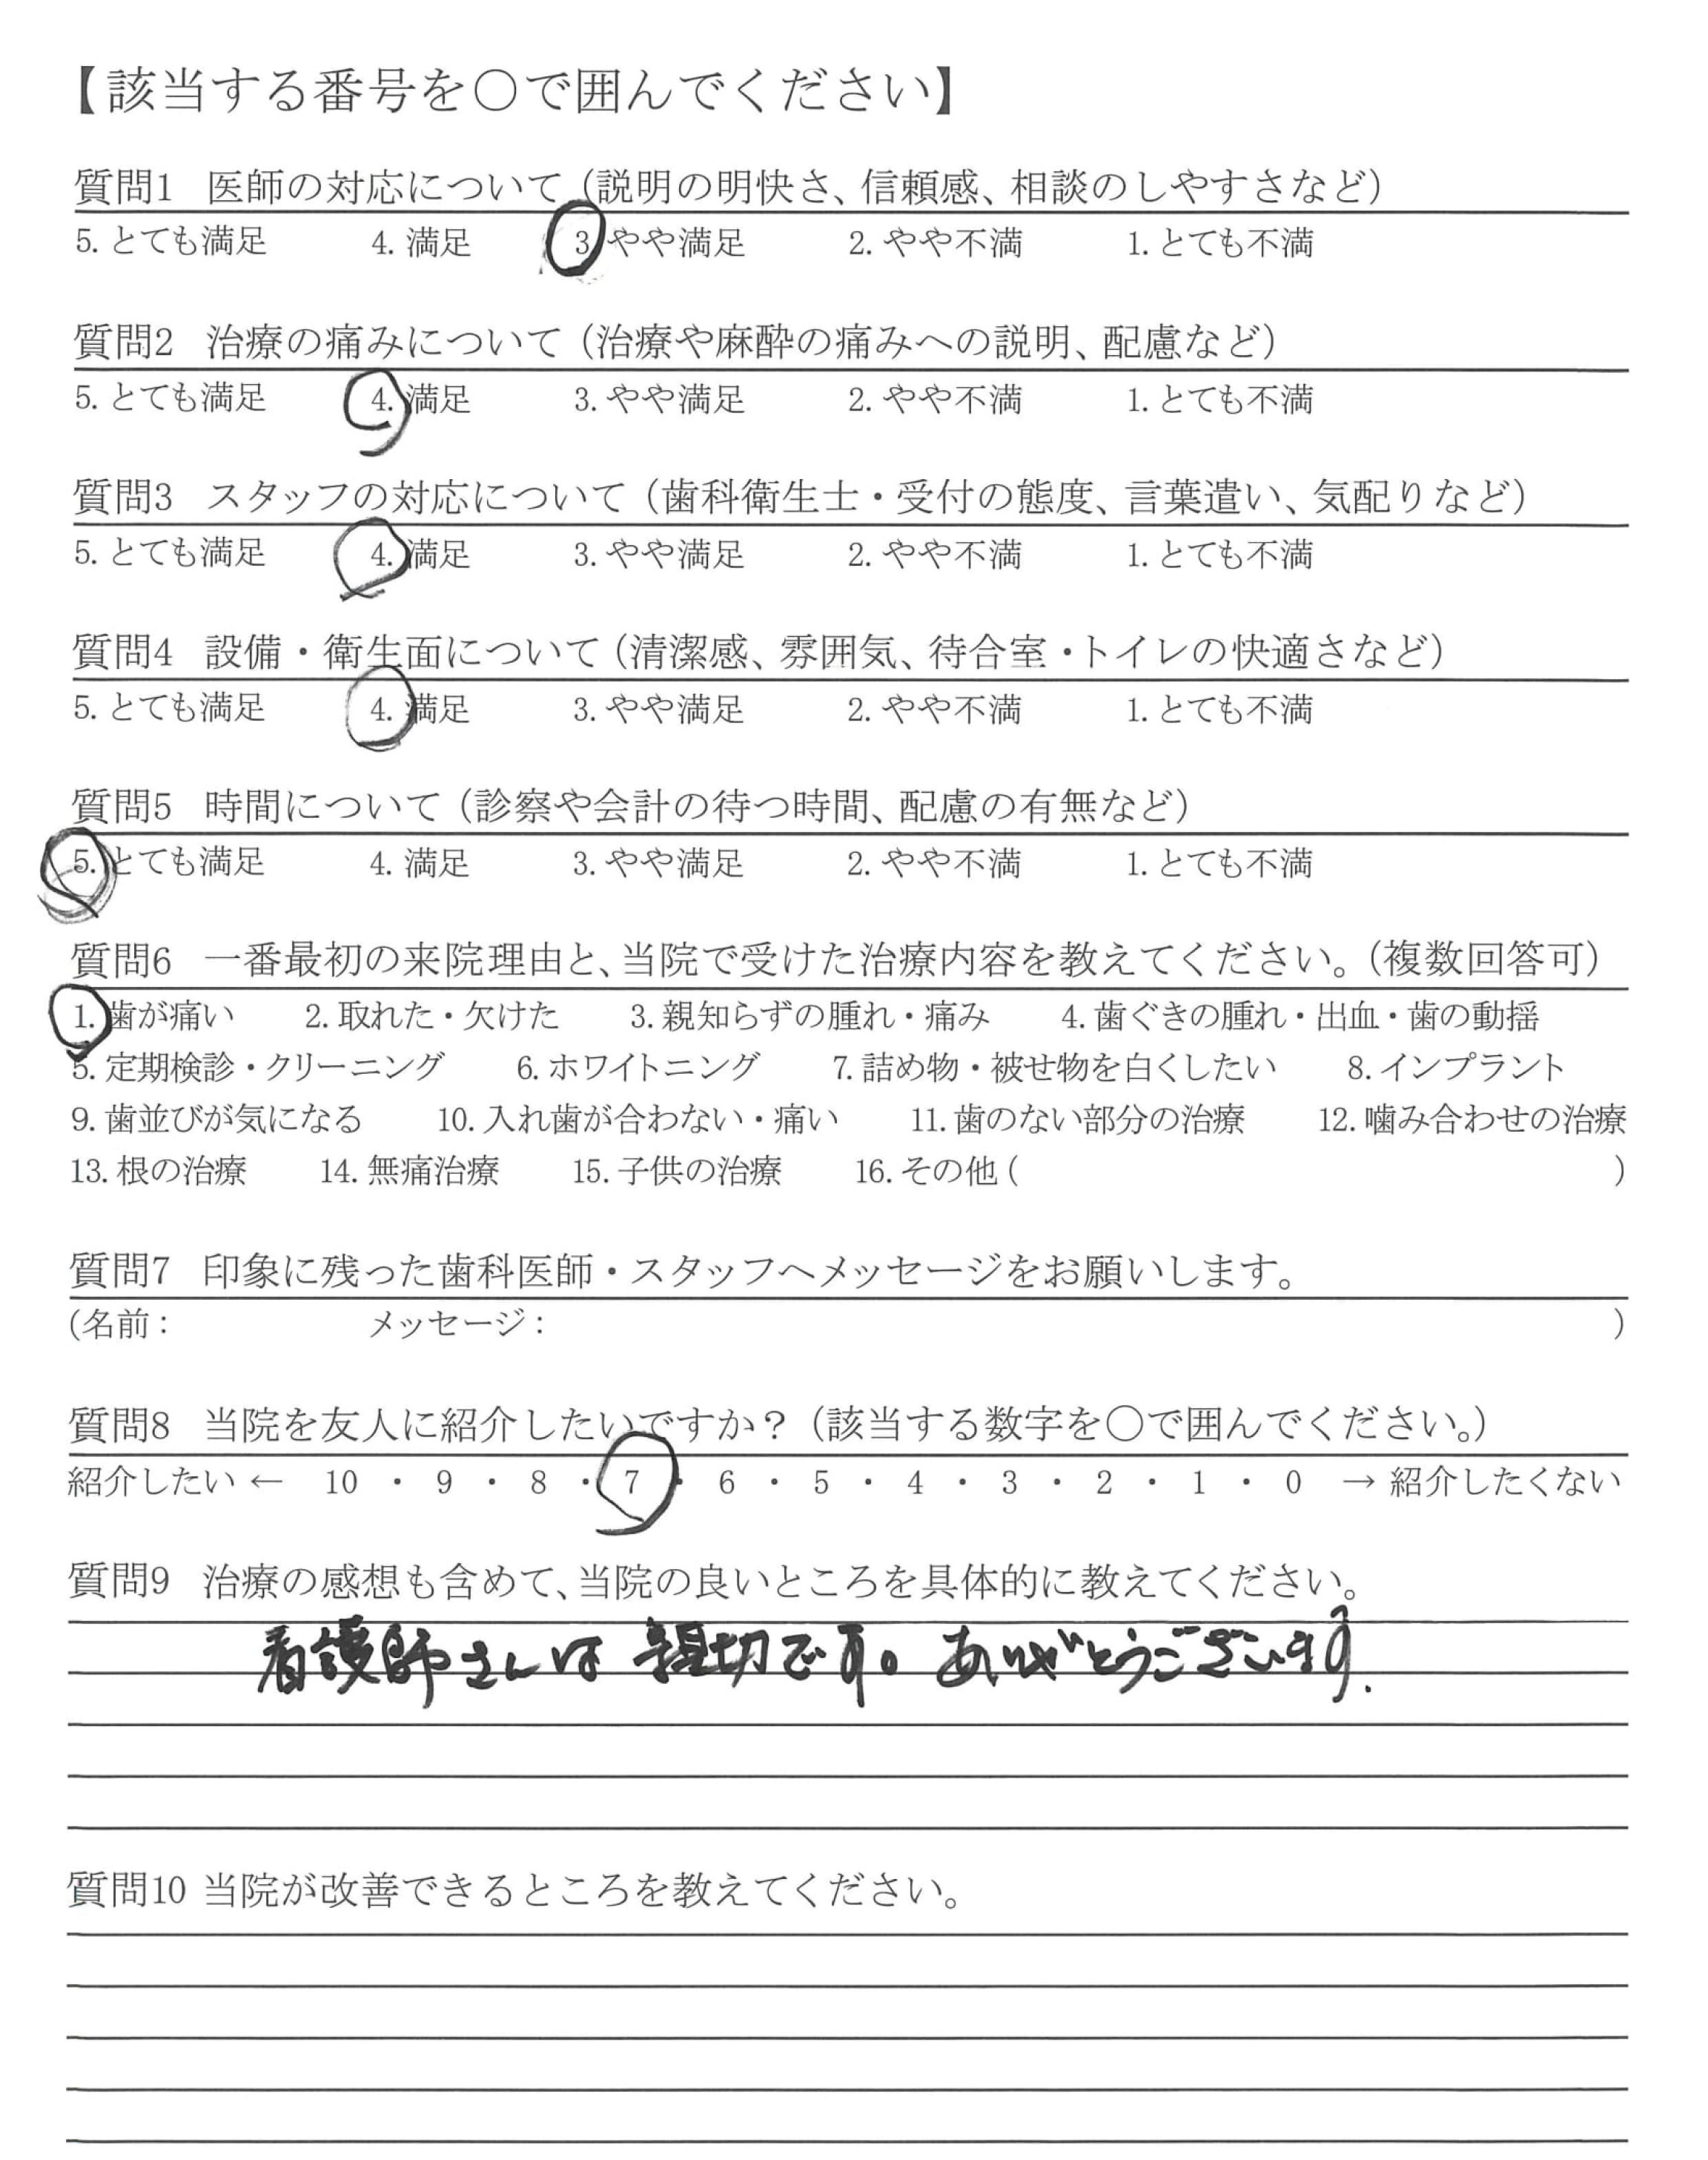 【該当する番号を〇で囲んでください】
質問1 医師の対応について（説明の明快さ、信頼感、相談のしやすさなど）
5. とても満足 4. 満足 3. やや満足 2. やや不満 1. とても不満
質問2 治療の痛みについて（治療や麻酔の痛みへの説明、配慮など）
5. とても満足 4. 満足 3. やや満足 2. やや不満 1. とても不満
質問3 スタッフの対応について（歯科衛生士・受付の態度、言葉遣い、気配りなど）
5. とても満足 4. 満足 3. やや満足 2. やや不満 1. とても不満
質問4 設備・衛生面について（清潔感、雰囲気、待合室・トイレの快適さなど）
5. とても満足 4. 満足 3. やや満足 2. やや不満 1. とても不満
質問5 時間について（診察や会計の待つ時間、配慮の有無など）
5. とても満足 4. 満足 3. やや満足 2. やや不満 1. とても不満
質問6 一番最初の来院理由と、当院で受けた治療内容を教えてください。（複数回答可）
1. 歯が痛い 2. 取れた・欠けた 3. 親知らずの腫れ・痛み 4. 歯ぐきの腫れ・出血・歯の動揺
5. 定期検診・クリーニング 6. ホワイトニング 7. 詰め物・被せ物を白くしたい 8. インプラント
9. 歯並びが気になる 10. 入れ歯が合わない・痛い 11. 歯のない部分の治療 12. 噛み合わせの治療
13. 根の治療 14. 無痛治療 15. 子供の治療 16. その他 ( )
質問7 印象に残った歯科医師・スタッフへメッセージをお願いします。
(名前： メッセージ： )
質問8 当院を友人に紹介したいですか？（該当する数字を〇で囲んでください。）
紹介したい ← 10 ・ 9 ・ 8 ・ 7 ・ 6 ・ 5 ・ 4 ・ 3 ・ 2 ・ 1 ・ 0 → 紹介したくない
質問9 治療の感想も含めて、当院の良いところを具体的に教えてください。
看護師さんは 親切です。ありがとうございます.
質問10 当院が改善できるところを教えてください。